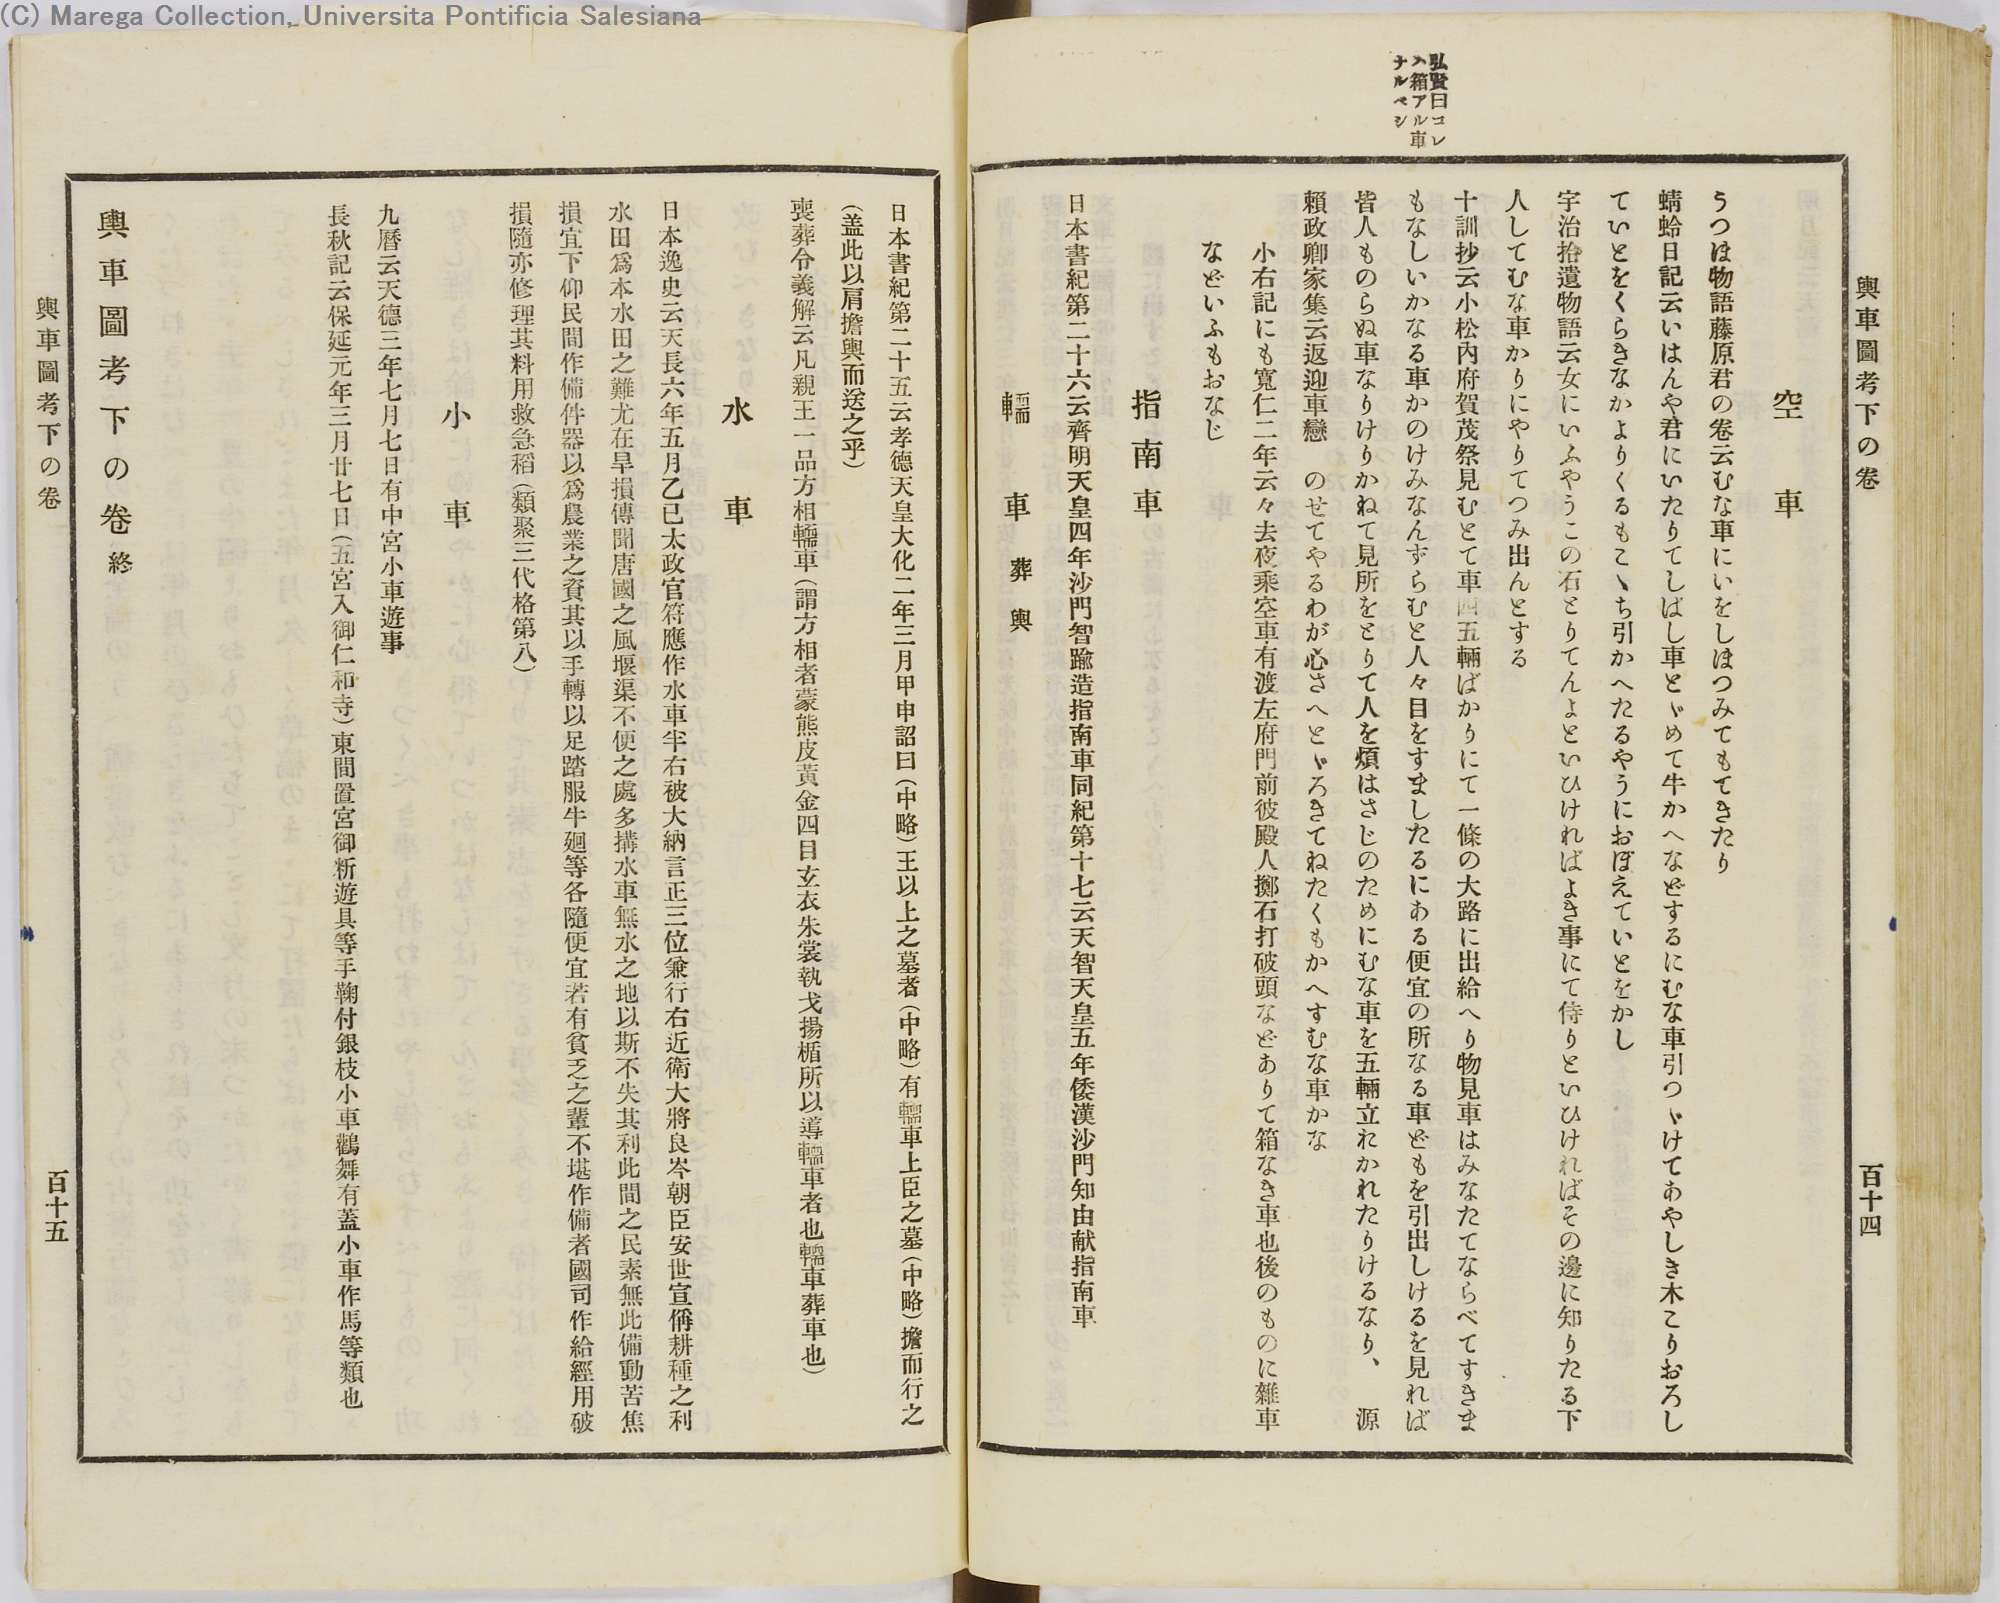 (C) Marega Collection, Universita Pontificia Salesiana
輿車圖考下の卷
百十四
弘賢曰コレ
ハ箱アル車
ナルベシ
空車
うつほ物語藤原君の卷云むな車にいをしほつみてもてきたり
蜻蛉日記云いはんや君にいたりてしばし車とゞめて牛かへなどするにむな車引つゞけてあやしき木こりおろし
ていとをくらきなかよりくるもこゝち引かへたるやうにおぼえていとをかし
宇治拾遺物語云女にいふやうこの石とりてんよといひければよき事にて侍りといひければその邊に知りたる下
人してむな車かりにやりてつみ出んとする
十訓抄云小松內府賀茂祭見むとて車四五輛ばかりにて一條の大路に出給へり物見車はみなたてならべてすきま
もなしいかなる車かのけみなんずらむと人々目をすましたるにある便宜の所なる車どもを引出しけるを見れば
皆人ものらぬ車なりけりかねて見所をとりて人を煩はさじのためにむな車を五輛立れかれたりけるなり、　源
賴政卿家集云返迎車戀　のせてやるわが心さへとゞろきてねたくもかへすむな車かな
小右記にも寬仁二年云々去夜乘空車有渡左府門前彼殿人擲石打破頭などありて箱なき車也後のものに雜車
などいふもおなじ
指南車
日本書紀第二十六云齊明天皇四年沙門智踰造指南車同紀第十七云天智天皇五年倭漢沙門知由献指南車
轜車 葬輿
日本書紀第二十五云孝德天皇大化二年三月甲申詔曰（中略）王以上之墓者（中略）有轜車上臣之墓（中略）擔而行之
（盖此以肩擔輿而送之乎）
喪葬令義解云凡親王一品方相轜車（謂方相者蒙熊皮黃金四目玄衣朱裳執戈揚楯所以導轜車者也轜車葬車也）
水車
日本逸史云天長六年五月乙巳太政官符應作水車半右被大納言正三位兼行右近衛大將良岑朝臣安世宣偁耕種之利
水田爲本水田之難尤在旱損傳聞唐國之風堰渠不便之處多搆水車無水之地以斯不失其利此間之民素無此備動苦焦
損宜下仰民間作備件器以爲農業之資其以手轉以足踏服牛廻等各隨便宜若有貧乏之輩不堪作備者國司作給經用破
損隨亦修理其料用救急稻（類聚三代格第八）
小車
九曆云天德三年七月七日有中宮小車遊事
長秋記云保延元年三月廿七日（五宮入御仁和寺）東間置宮御新遊具等手鞠付銀枝小車鸖舞有蓋小車作馬等類也
輿車圖考下の卷終
輿車圖考下の卷
百十五